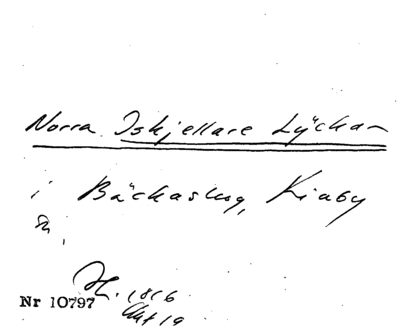 Norra Iskjellare Lyckan
i Bäckaskog, Kiaby
H. 1816
Nr 10797
Akt 19